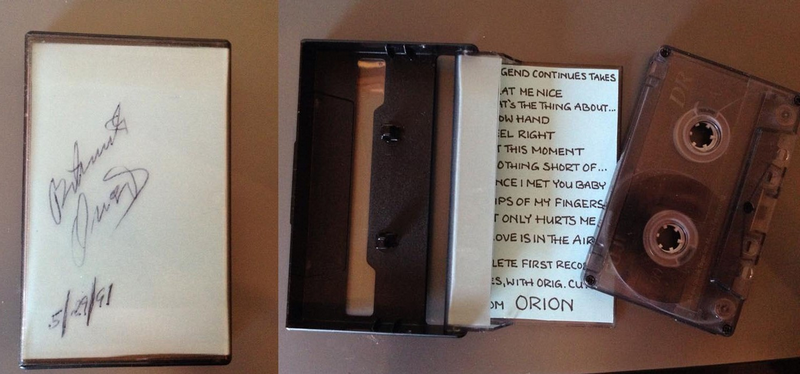 5/29/91
GEND CONTINUES TAKES
AT ME NICE
AT'S THE THING ABOUT...
OW HAND
EL RIGHT
T THIS MOMENT
OTHING SHORT OF...
NCE I MET YOU BABY
IPS OF MY FINGERS
T ONLY HURTS ME
LOVE IS IN THE AIR
LETE FIRST RECO
ES, WITH ORIG. CU
OM ORION
DR